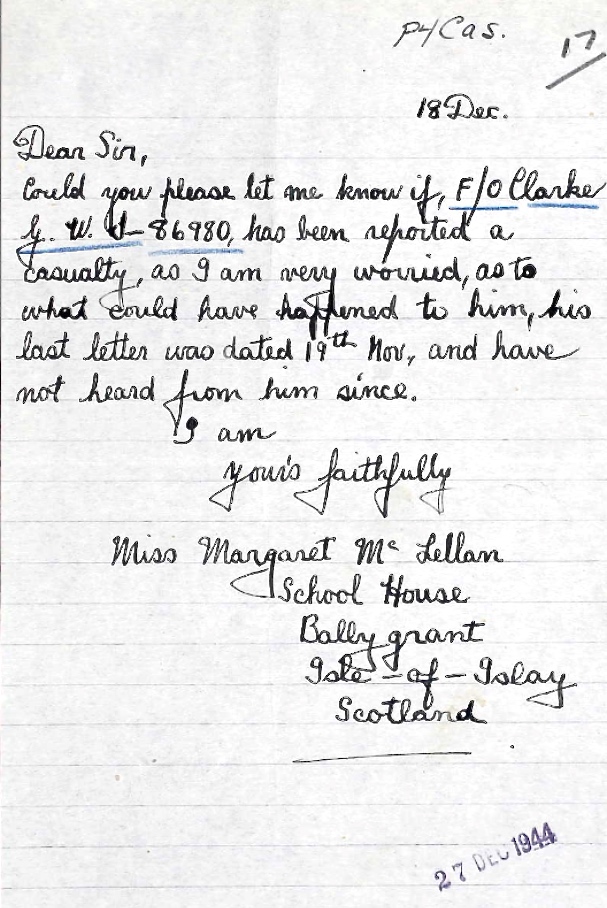 P4 Cas.
17
18 Dec.
Dear Sir,
Could you please let me know if, F/O Clarke
G. W. J- 86980, has been reported a
casualty, as I am very worried, as to
what could have happened to him, his
last letter was dated 19th Nov, and have
not heard from him since.
I am
your's faithfully
Miss Margaret Mc Lellan
School House
Ballygrant
Isle-of-Islay
Scotland
27 DEC 1944